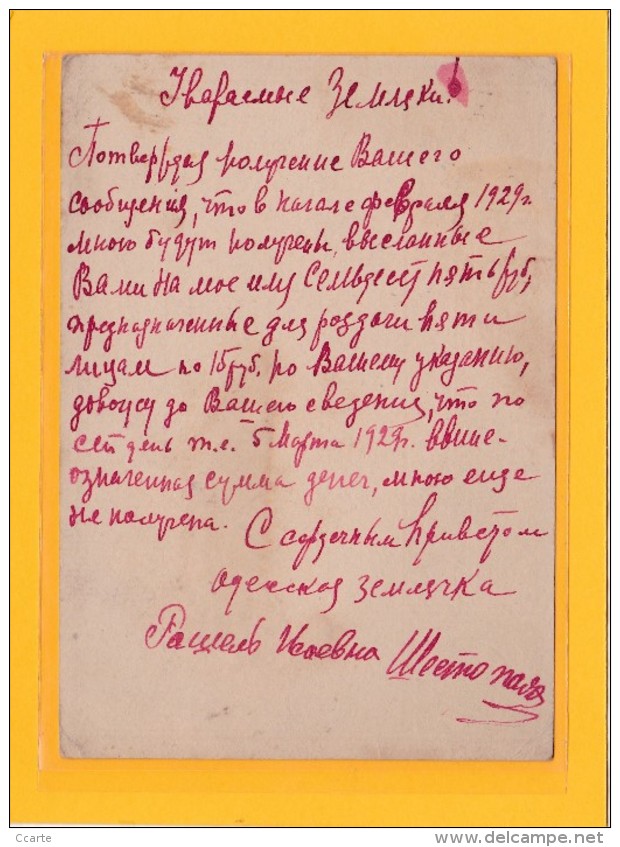 Уважаемые Земляки!
Потверждая получение Вашего
сообщения, что в начале февраля 1929 г.
мною будут получены, высланные
Вами на мое имя Семьдесят пять руб.,
предназначенные для роздачи пяти
лицам по 15 руб. по Вашему указанию,
довожу до Вашего сведения, что по
сей день т.е. 5 Марта 1929 г. выше-
означенная сумма денег, мною еще
не получена.
С сердечным Приветом
Одесская землячка
Рашель Исаевна Шестопал
Ccarte
www.delcampe.net